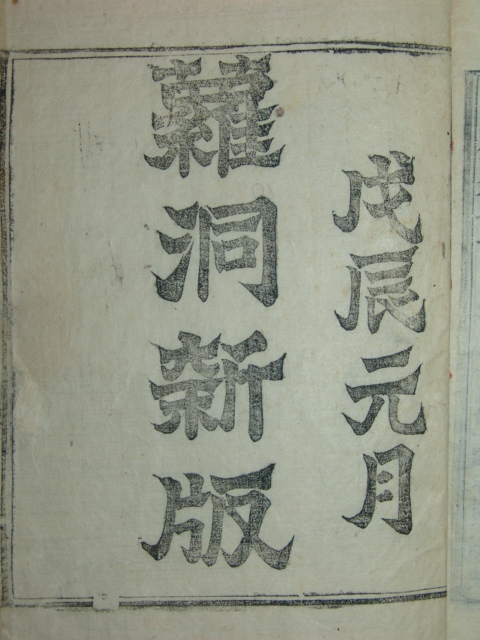 戊辰元月
蘿洞新版